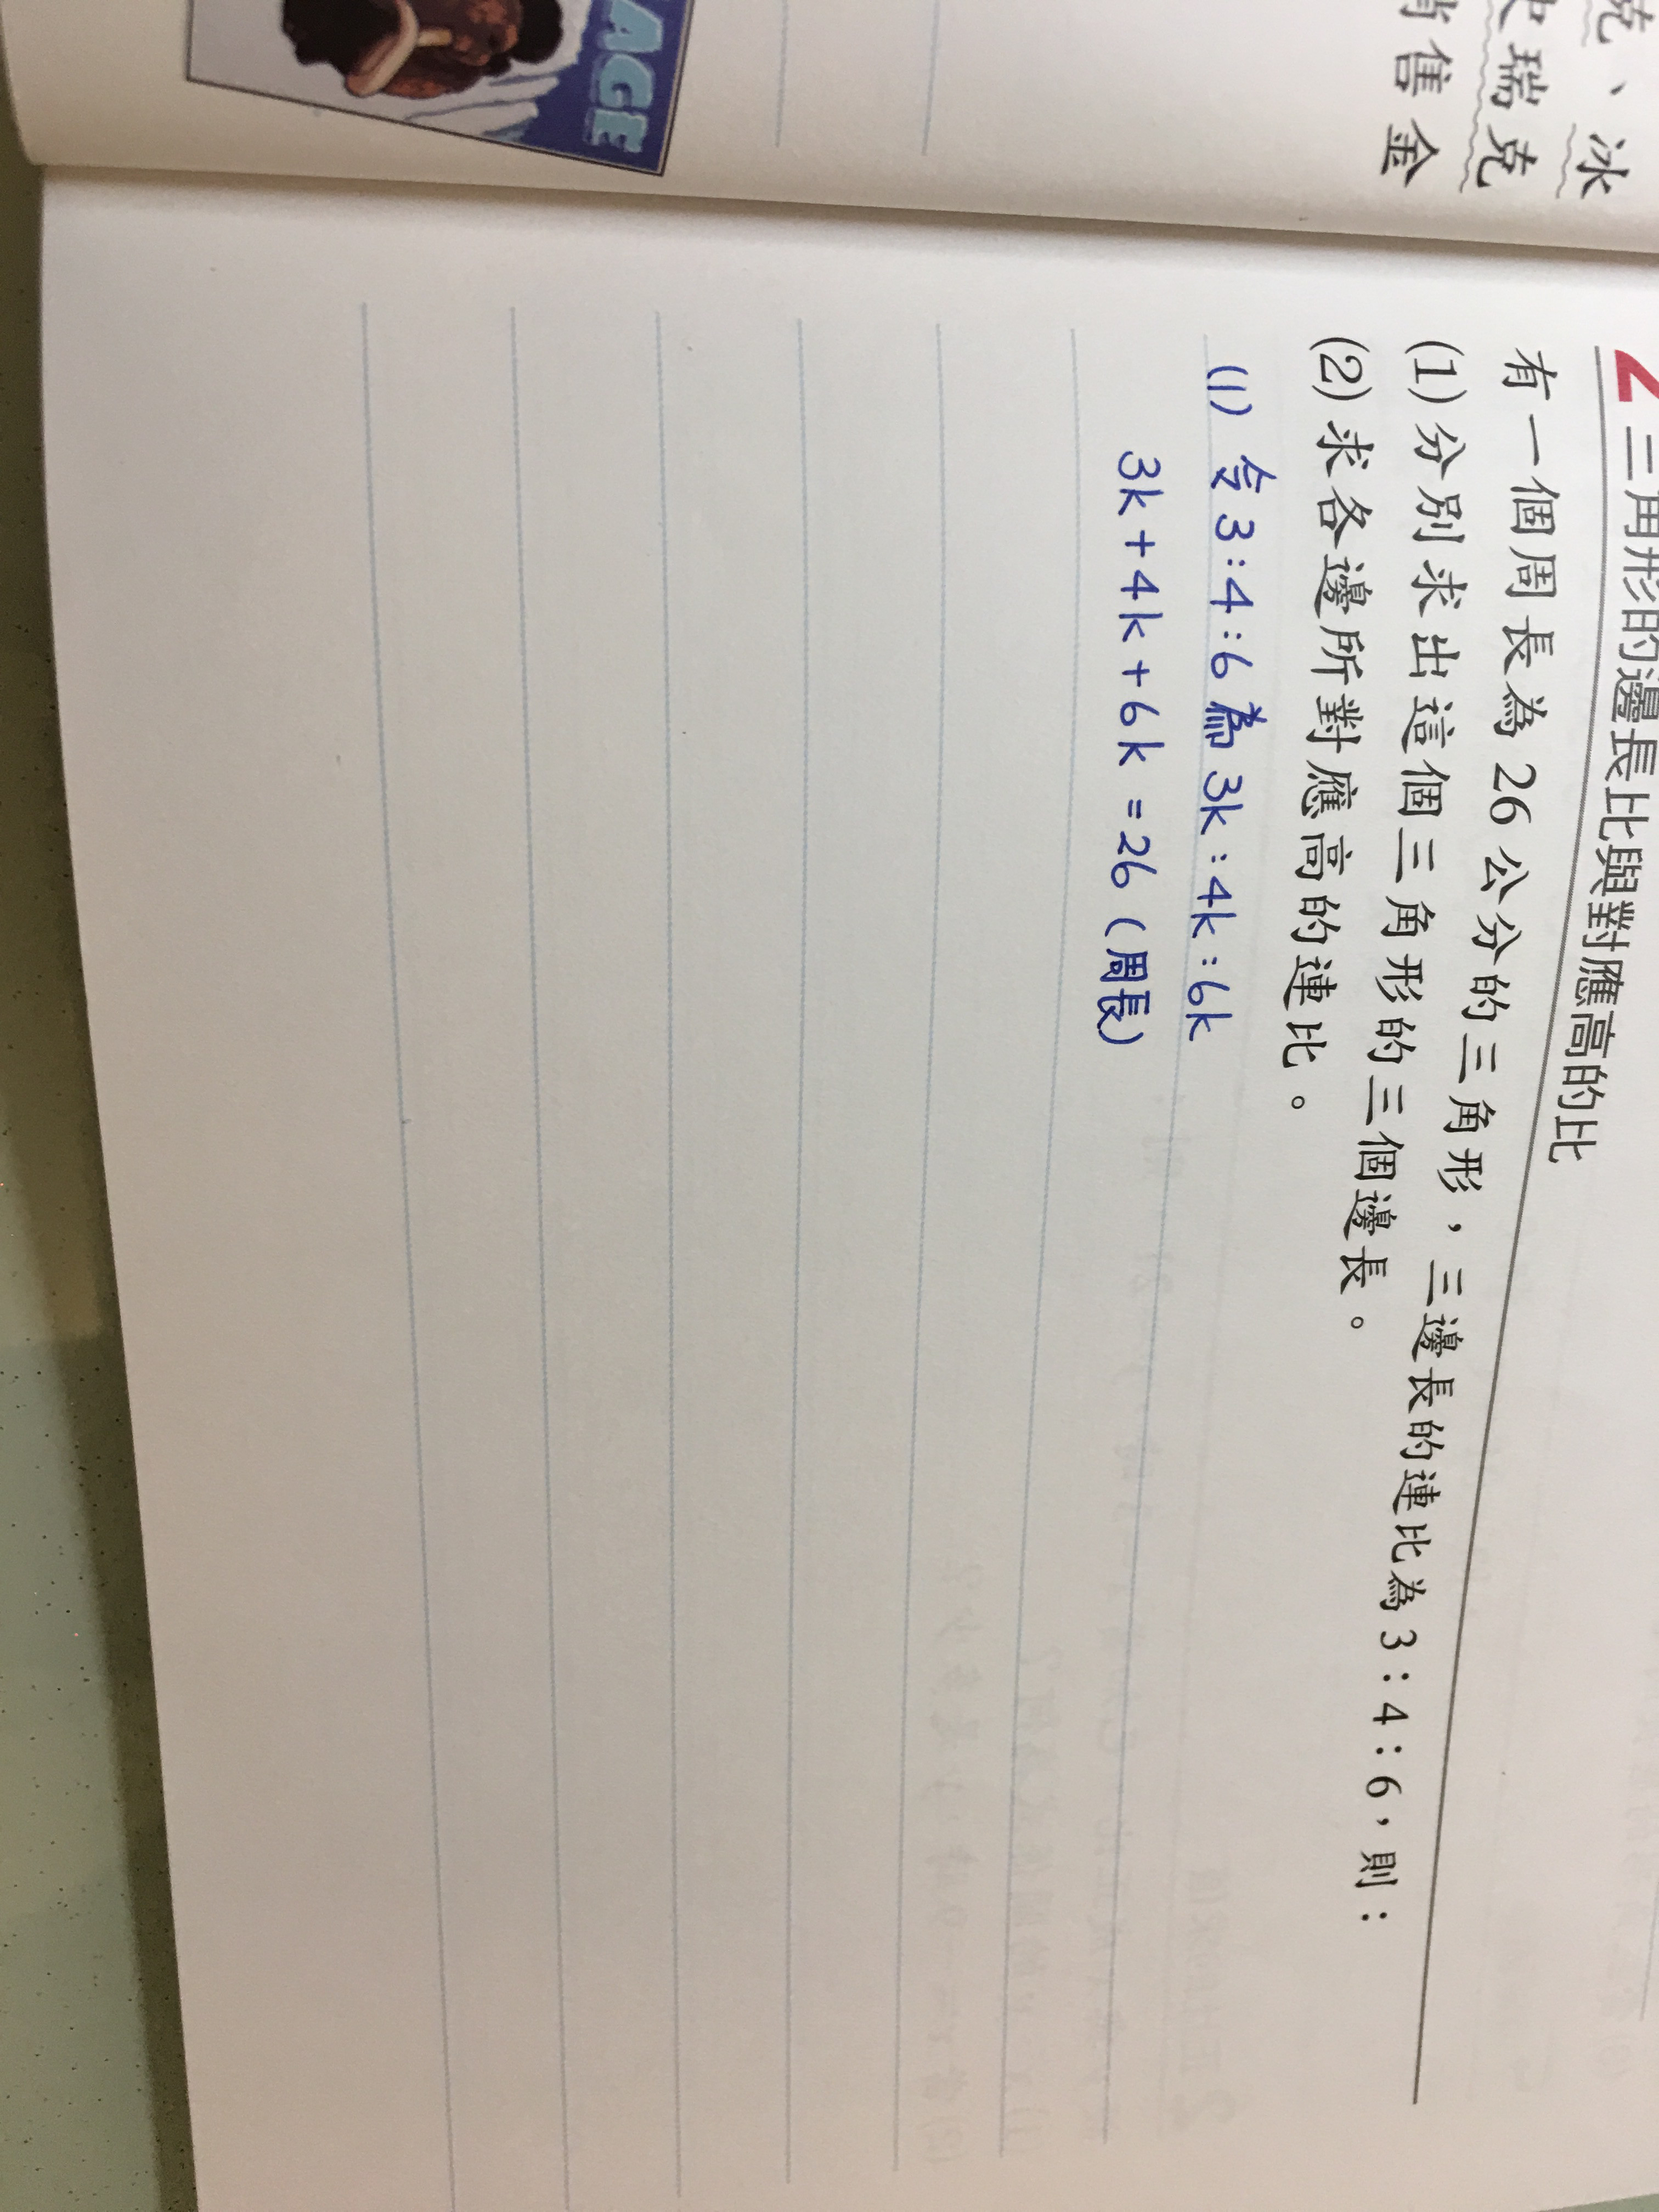 冰
史瑞克
售金
AGE
2 三角形的邊長比與對應高的比
有一個周長為 26 公分的三角形，三邊長的連比為 3：4：6，則：
(1) 分別求出這個三角形的三個邊長。
(2) 求各邊所對應高的連比。
(1) 令 3：4：6 為 3k：4k：6k
3k + 4k + 6k = 26 (周長)